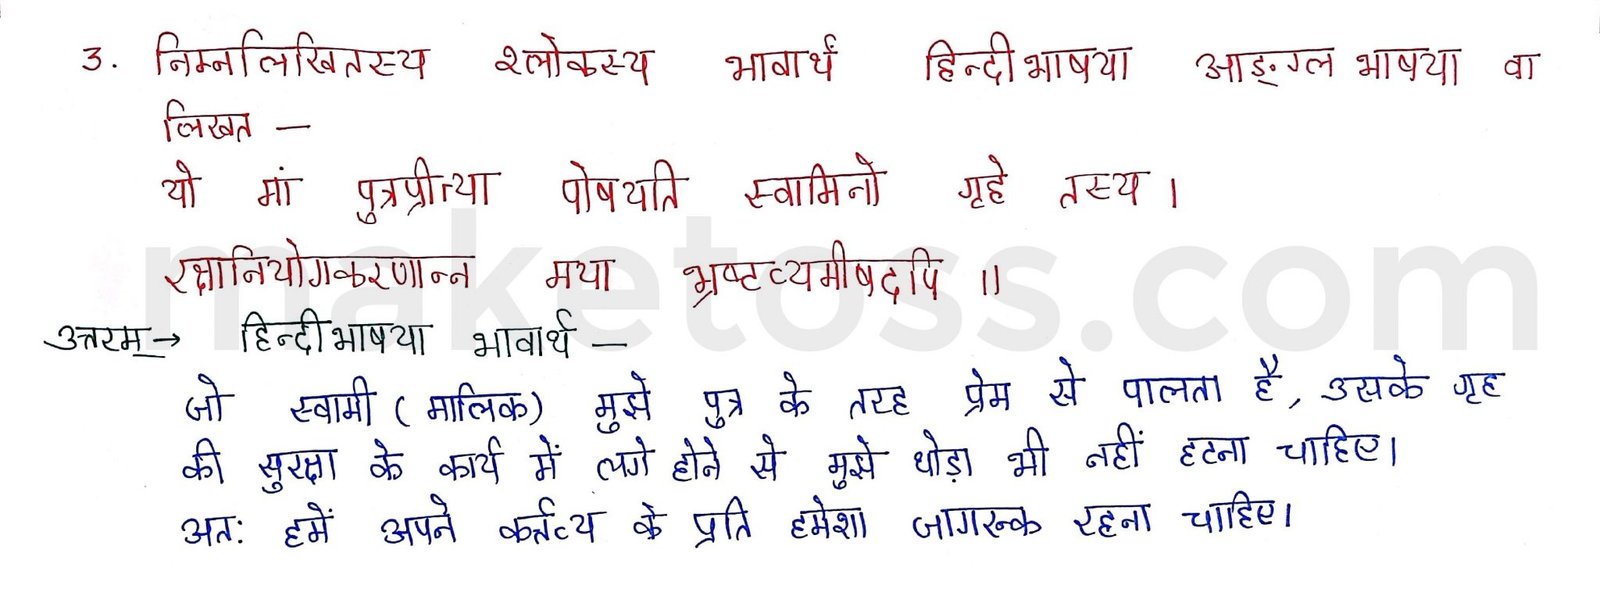 3. निम्नलिखितस्य श्लोकस्य भावार्थं हिन्दीभाषया आङ्ग्ल भाषया वा
लिखत –
यो मां पुत्रप्रीत्या पोषयति स्वामिनो गृहे तस्य ।
रक्षानियोगकरणान्न मया भ्रष्टव्यमीषदपि ॥
उत्तरम् → हिन्दीभाषया भावार्थ –
जो स्वामी ( मालिक ) मुझे पुत्र के तरह प्रेम से पालता है, उसके गृह
की सुरक्षा के कार्य में लगे होने से मुझे थोड़ा भी नहीं हटना चाहिए।
अतः हमें अपने कर्त्तव्य के प्रति हमेशा जागरुक रहना चाहिए।
maketoss.com